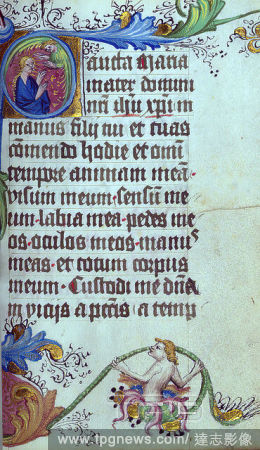 Sancta Maria
mater domini
nr̄i ih̄u xp̄i in
manus filij tui et tuas
cōmendo hodie et omi
tempore animam meā·
visum meum·sensū me
um·labia mea·pedes me
os·oculos meos·manus
meas·et totum corpus
meum· Custodi me dn̄a
a vicijs a pcc̄is a temp
www.tpgnews.com / 達志影像